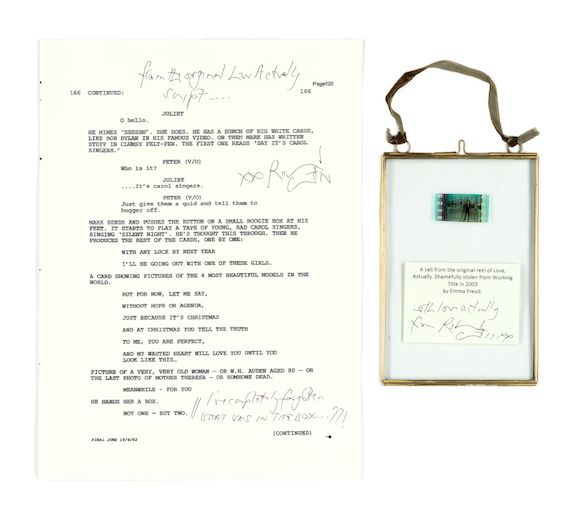 from the original Love Actually
script....
Page120
166 CONTINUED: 166
JULIET
O hello.
HE MIMES 'SSSSSH'. SHE DOES. HE HAS A BUNCH OF BIG WHITE CARDS,
LIKE BOB DYLAN IN HIS FAMOUS VIDEO. ON THEM MARK HAS WRITTEN
STUFF IN CLUMSY FELT-PEN. THE FIRST ONE READS 'SAY IT'S CAROL
SINGERS.'
PETER (V/O)
Who is it?
JULIET
....It's carol singers.
PETER (V/O)
Just give them a quid and tell them to
bugger off.
MARK BENDS AND PUSHES THE BUTTON ON A SMALL BOOGIE BOX AT HIS
FEET. IT STARTS TO PLAY A TAPE OF YOUNG, BAD CAROL SINGERS,
SINGING 'SILENT NIGHT'. HE'S THOUGHT THIS THROUGH. THEN HE
PRODUCES THE REST OF THE CARDS, ONE BY ONE:
WITH ANY LUCK BY NEXT YEAR
I'LL BE GOING OUT WITH ONE OF THESE GIRLS.
A CARD SHOWING PICTURES OF THE 4 MOST BEAUTIFUL MODELS IN THE
WORLD.
BUT FOR NOW, LET ME SAY,
WITHOUT HOPE OR AGENDA,
JUST BECAUSE IT'S CHRISTMAS
AND AT CHRISTMAS YOU TELL THE TRUTH
TO ME, YOU ARE PERFECT,
AND MY WASTED HEART WILL LOVE YOU UNTIL YOU
LOOK LIKE THIS…
PICTURE OF A VERY, VERY OLD WOMAN - OR W.H. AUDEN AGED 80 - OR
THE LAST PHOTO OF MOTHER THERESA - OR SOMEONE DEAD.
MEANWHILE - FOR YOU
HE HANDS HER A BOX.
NOT ONE - BUT TWO.
I've completely forgotten
WHAT WAS IN THE BOX....??!
(CONTINUED)
FINAL JUNE 19/6/02
A cell from the original reel of Love,
Actually. Shamefully stolen from Working
Title in 2003
by Emma Freud.
with love actually
from